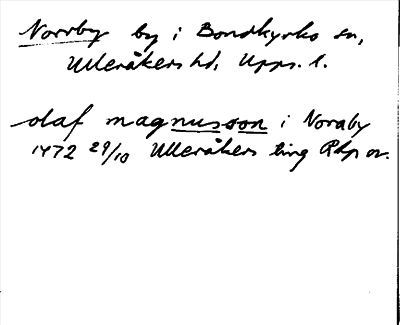 Norrby by i Bondkyrko sn,
Ulleråkers hd, Upps. l.
olaf magnusson i Noraby
1472 29/10 Ulleråkers ting Rap or.